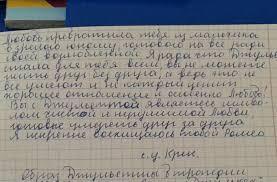 Любовь превратила тебя из мальчика
в зрелого юношу, готового на все ради
своей возлюбленной. Я рада что Джульет
стала для тебя всем, вы не можете
жить друг без друга, а ведь это не
все умеют и не который ценит
хорошие отношения и особенно Любовь!
Вы с Джульеттой являетесь симво-
лом чистой и нерушимой Любви,
готовые умереть друг за друга
Я искренне восхищаюсь тобой Ромео
с.у. Крис.
Образ Джульетты в трагедии